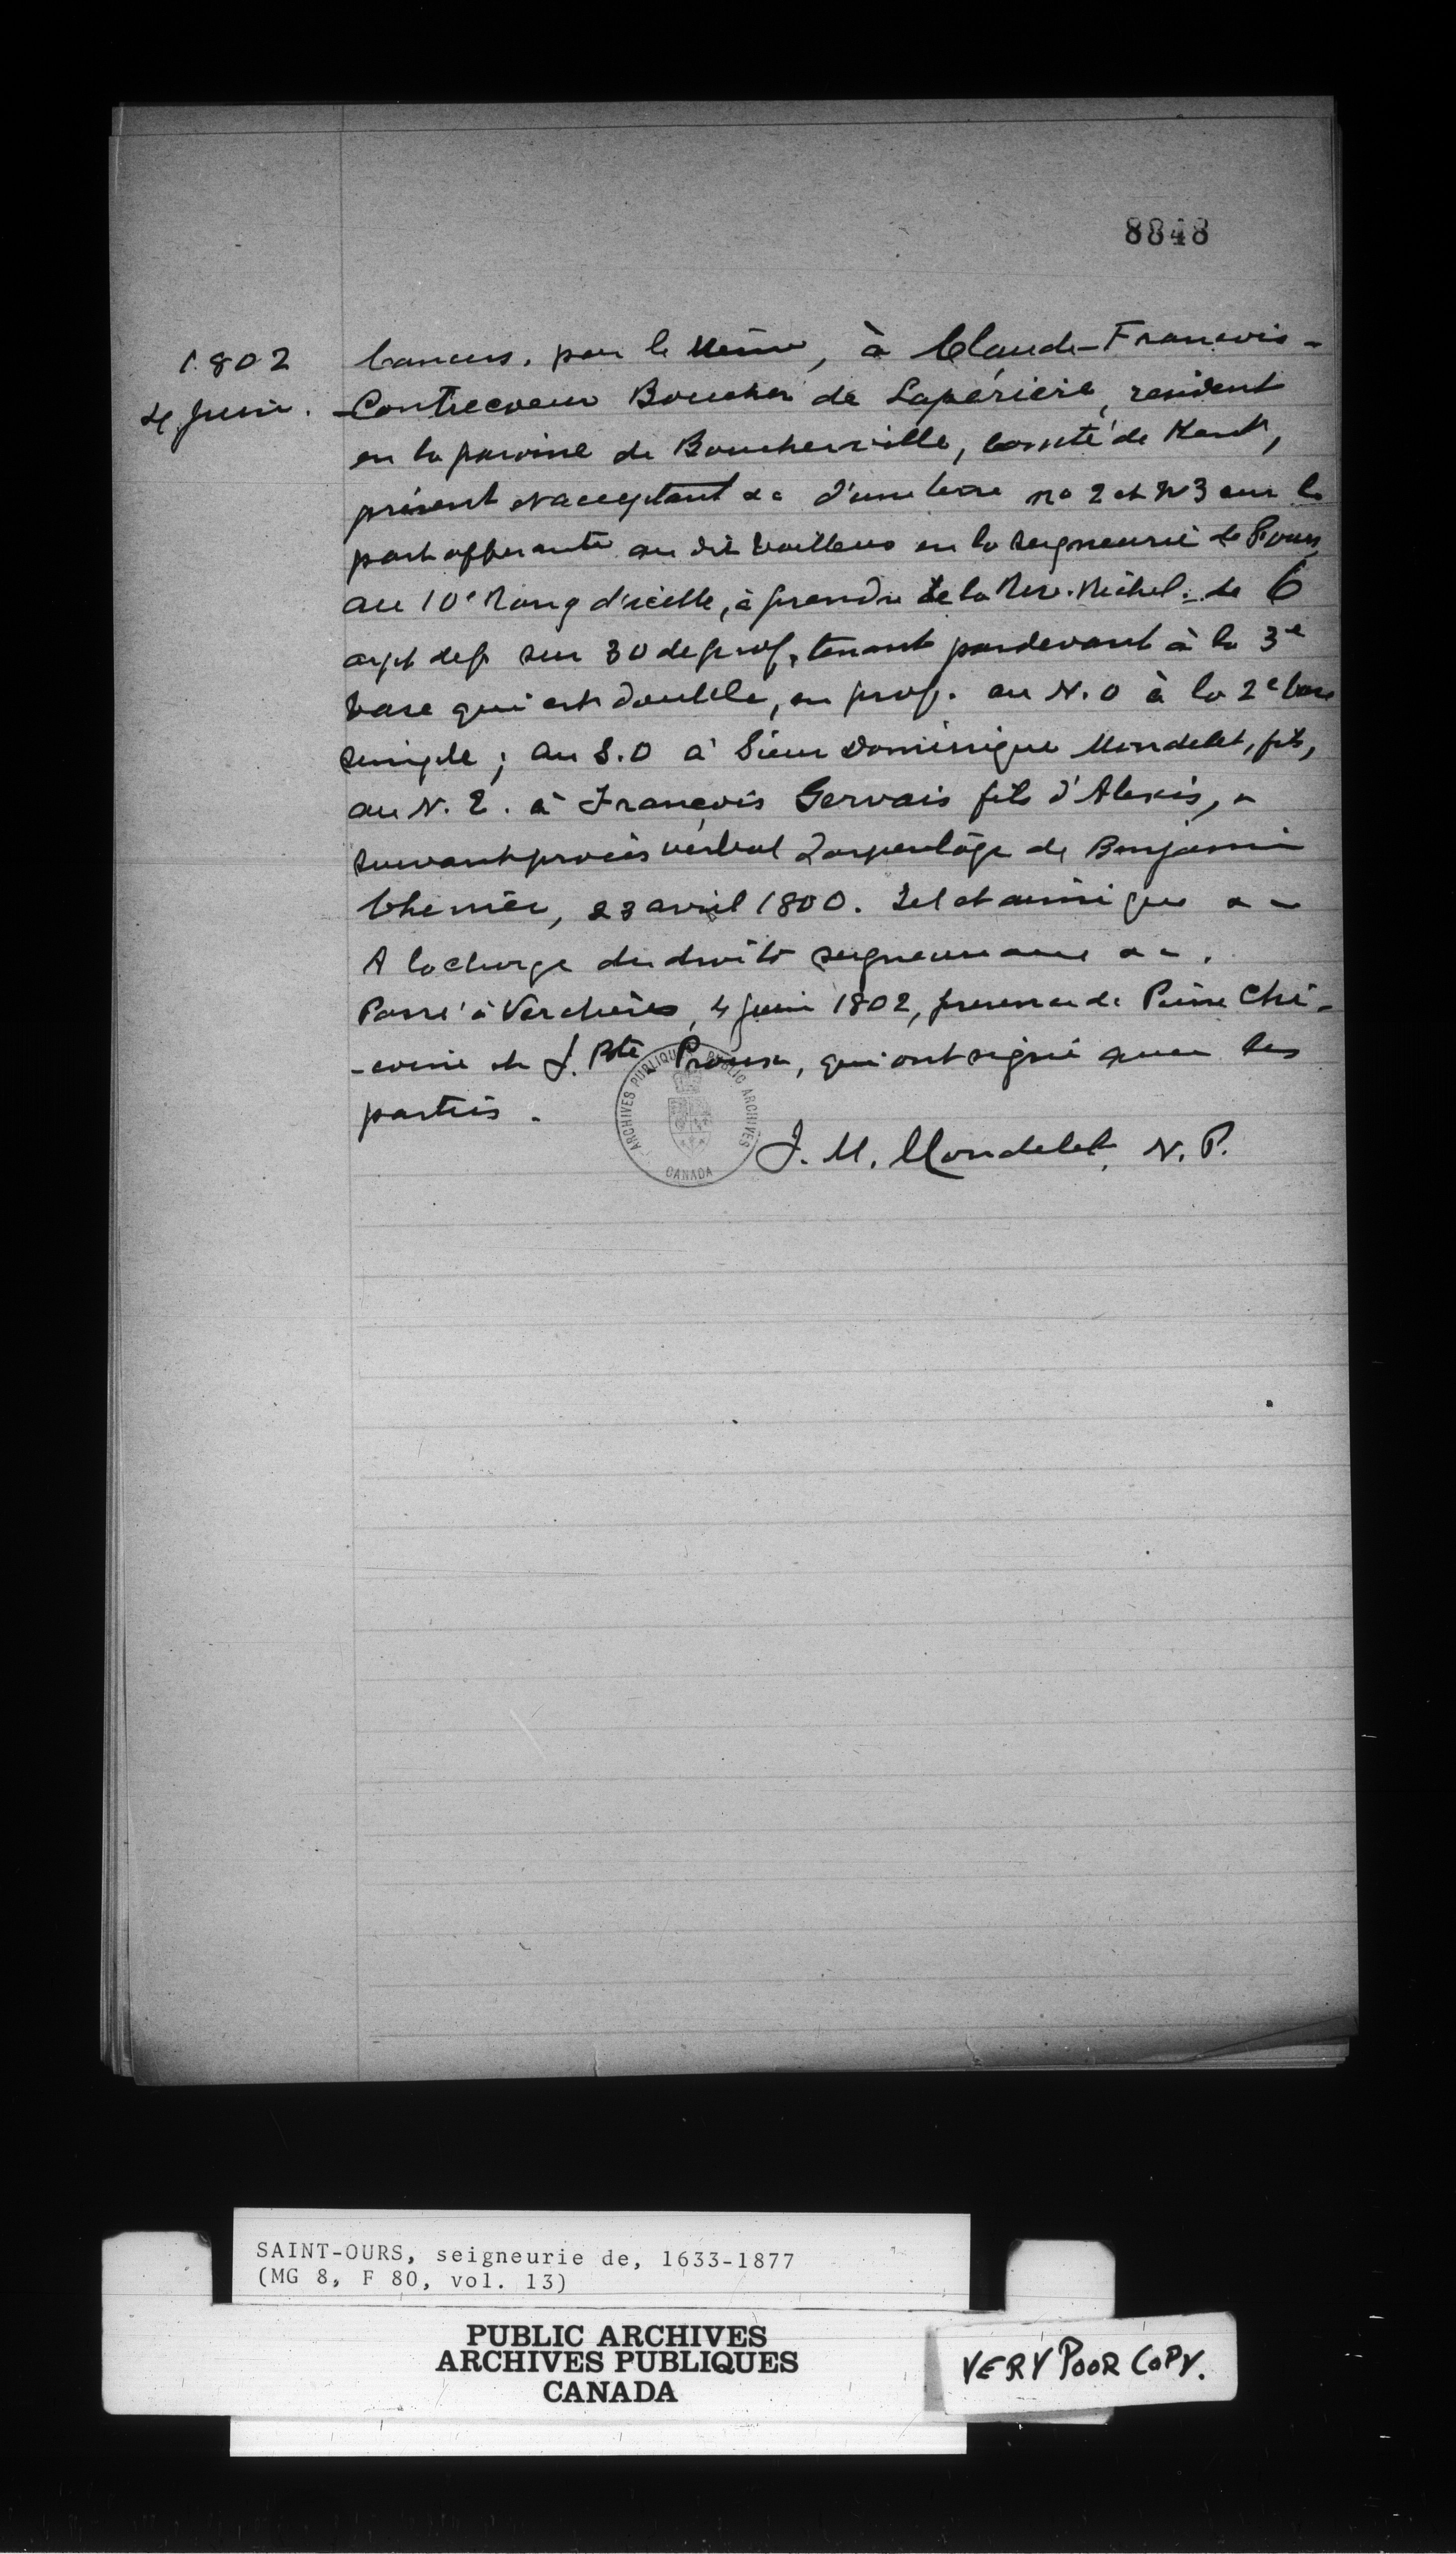 8848
1802
4 juin.
Concess. par le même, à Claude-François-
-Contrecoeur Boucher de Lapérière, résident
en la paroisse de Boucherville, comté de Kent,
présent et acceptant &c d'une terre no 2 et N 3 sur la
part afférente au dit bailleur en la seigneurie de St Ours
au 10e Rang d'icelle, à prendre de la Riv. Michel. de 6
arpt de fr sur 30 de prof, tenant pardevant à la 3e
base qui est double, en prof. au N.O à la 2e base
simple; au S.O à Sieur Dominique Mondelet, fils,
au N.E. à François Gervais fils d'Alexis, &
suivant procès verbal d'arpentage de Benjamin
Chenier, 23 avril 1800. Tel et ainsi que &c
A la charge des droits seigneuriaux &c.
Passé à Verchères, 4 juin 1802, présence de Pierre Chi-
-coine et J. Bte Proux, qui ont signé avec les
parties.
J. M. Mondelet, N.P.
ARCHIVES PUBLIQUES PUBLIC ARCHIVES
CANADA
SAINT-OURS, seigneurie de, 1633-1877
(MG 8, F 80, vol. 13)
PUBLIC ARCHIVES
ARCHIVES PUBLIQUES
CANADA
VERY POOR COPY.